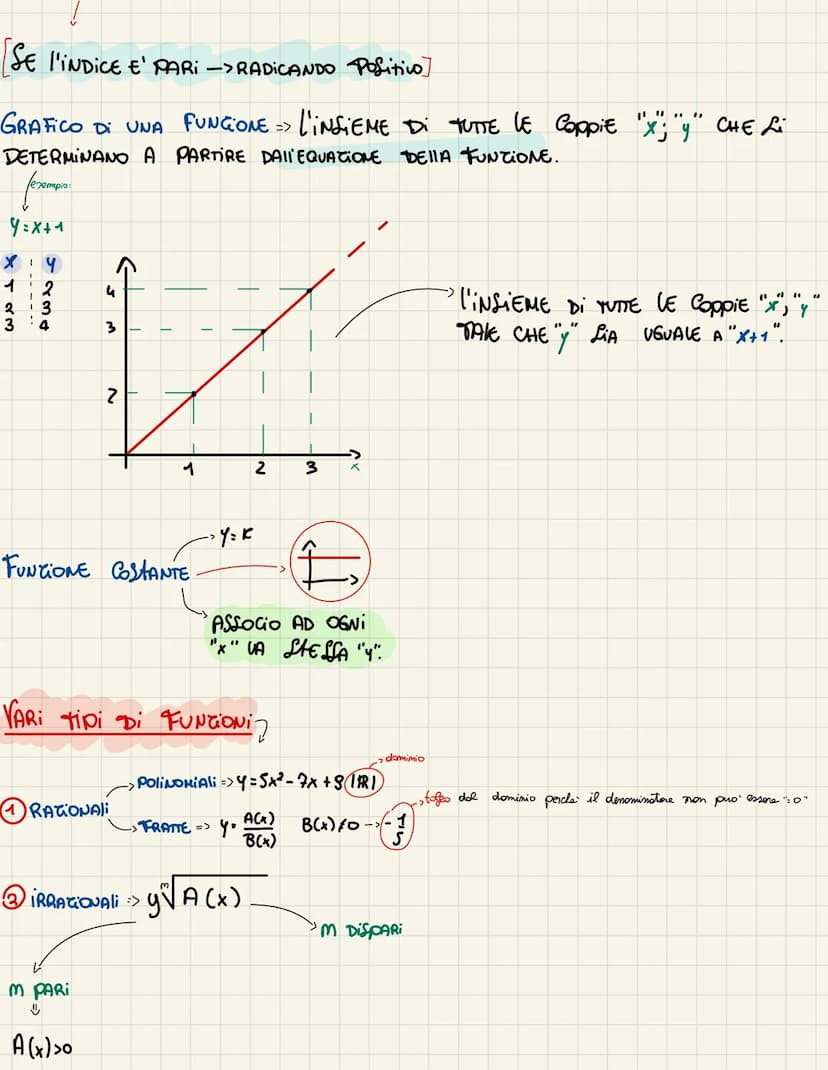 [SE l'iNDiCE E' PARi -> RADiCANDO POSiTiVO]
GRAFiCO Di UNA FUNZiONE => L'iNSiEME Di TUTTE LE COPPiE "x"; "y" CHE Si
DETERMiNANO A PARTiRE DAll'EQUAZiONE DEllA FUNZiONE.
esempio:
y=x+1
x y
1 2
2 3
3 4
4
3
2
1 2 3 x
l'iNSiEME Di TUTTE LE COPPiE "x"; "y"
TALE CHE "y" SiA UGUALE A "x+1".
y=K
FUNZiONE COSTANTE
ASSOCiO AD OGNi
"x" LA STESSA "y".
VARi TiPi Di FUNZiONi
dominio
POLiNOMiALi => y=5x²-7x+8 |R|
① RAZiONALi
FRATTE => y= A(x)/B(x) B(x)≠0 -> -1/5 tolgo dal dominio perché il denominatore non puo' essere "=0"
② iRRAZiONALi => y ᵐ√A(x)
m DiSPARi
m PARi
A(x)>0